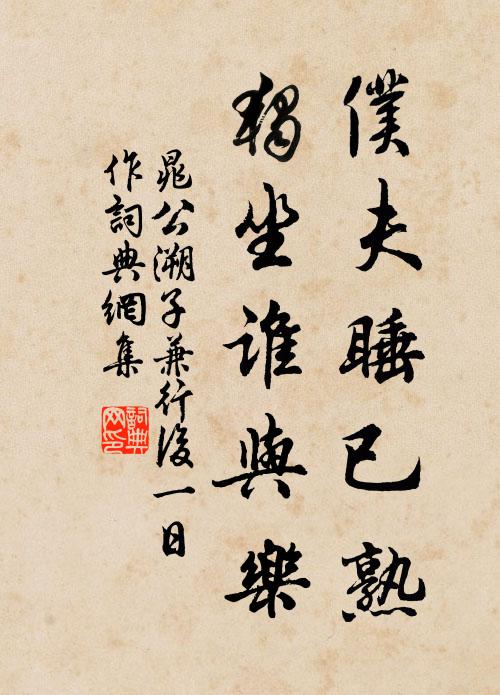 僕夫睡已熟
獨坐誰與樂
晁公溯子兼行後一日
作詞典網集
詞典网印